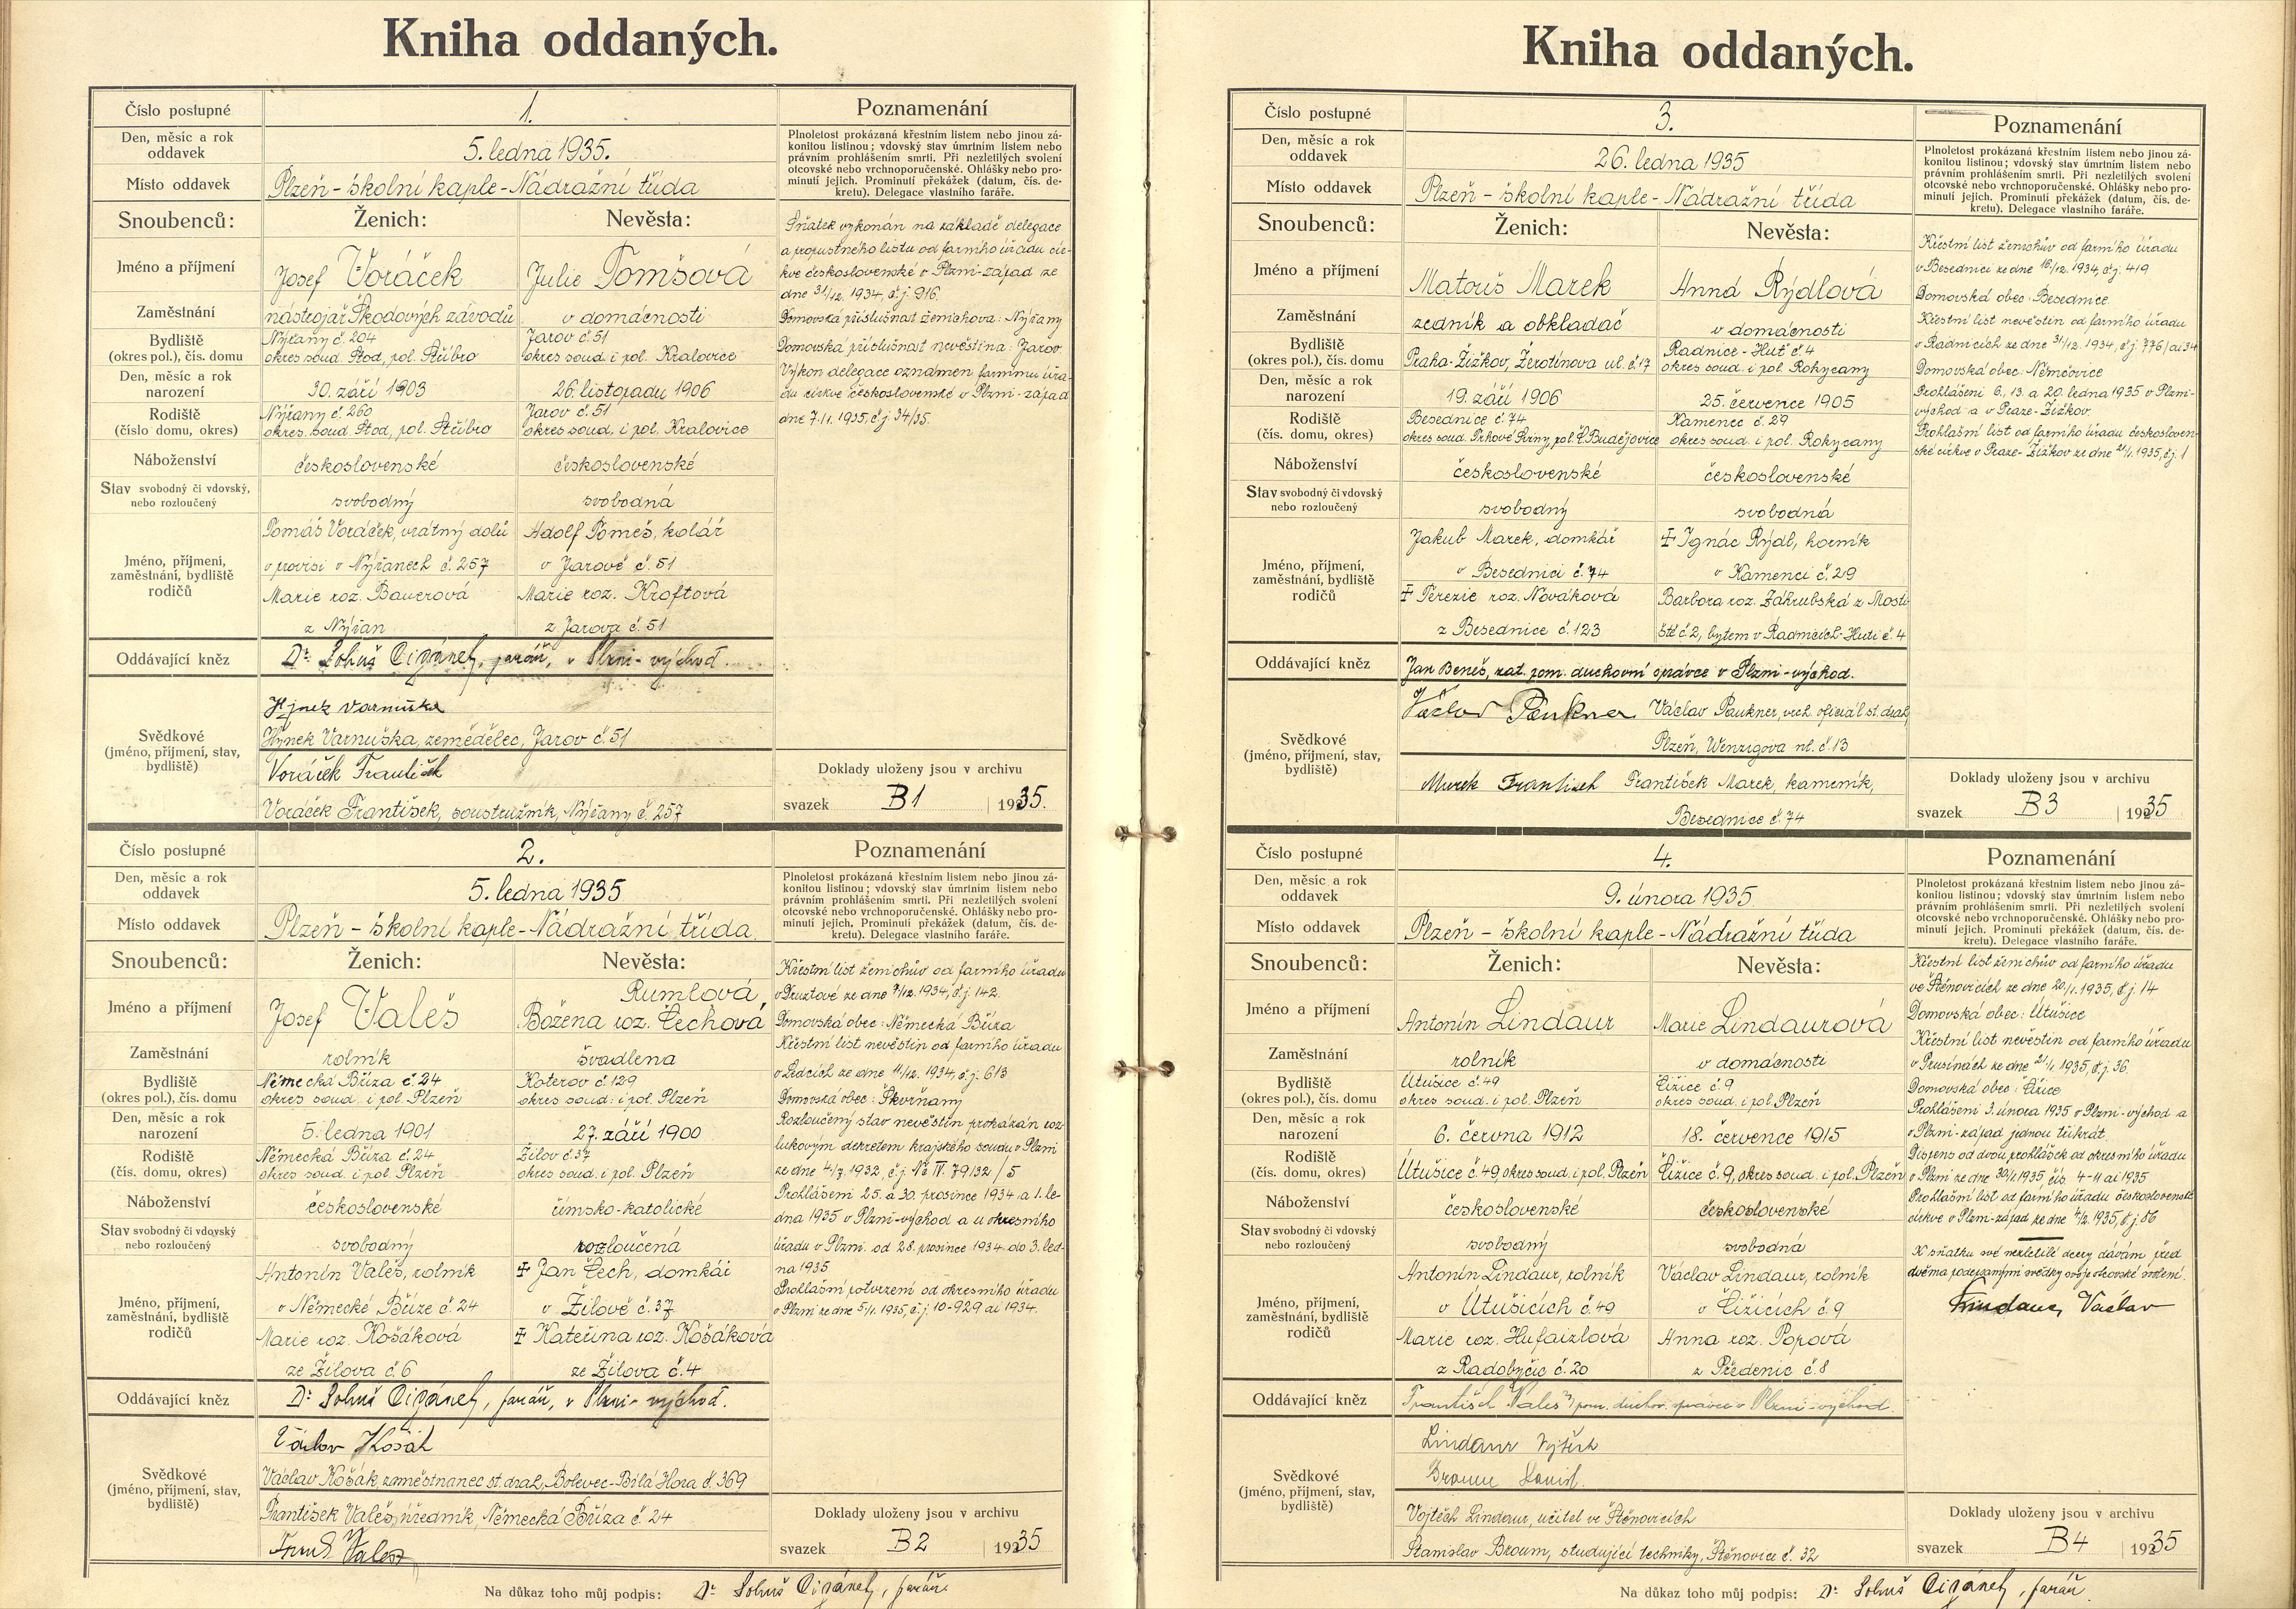 Kniha oddaných.
Číslo postupné
1.
Poznamenání
Den, měsíc a rok
oddavek
5. ledna 1935.
Plnoletost prokázaná křestním listem nebo jinou zá-
konitou listinou; vdovský stav úmrtním listem nebo
právním prohlášením smrti. Při nezletilých svolení
otcovské nebo vrchnoporučenské. Ohlášky nebo pro-
minutí jejich. Prominutí překážek (datum, čís. de-
kretu). Delegace vlastního faráře.
Místo oddavek
Plzeň - školní kaple - Nádražní třída
Snoubenců:
Ženich:
Nevěsta:
Jméno a příjmení
Josef Voráček
Julie Tomšová
Zaměstnání
nástrojař Škodových závodů
v domácnosti
Bydliště
(okres pol.), čís. domu
Nýřany č. 204
okres soud. Stod, pol. Stříbro
Jarov č. 51
okres soud. i pol. Kralovice
Den, měsíc a rok
narození
30. září 1903
26. listopadu 1906
Rodiště
(číslo domu, okres)
Nýřany č. 260
okres. soud. Stod, pol. Stříbro
Jarov č. 51
okres soud. i pol. Kralovice
Náboženství
československé
československé
Stav svobodný či vdovský,
nebo rozloučený
svobodný
svobodná
Jméno, příjmení,
zaměstnání, bydliště
rodičů
Tomáš Voráček, vrátný dolů
v provisi v Nýřanech č. 257
Marie roz. Bauerová
z Nýřan
Adolf Tomeš, kolář
v Jarově č. 51
Marie roz. Kroftová
z Jarova č. 51
Oddávající kněz
Dr. Lohuš Cigánek, farář, v Plzni-východ.
Svědkové
(jméno, příjmení, stav,
bydliště)
Hynek Varnuška
Hynek Varnuška, zemědělec, Jarov č. 51
Voráček František
Voráček František, soustružník, Nýřany č. 257
Sňatek vykonán na základě delegace
a propustného listu od farního úřadu cír-
kve československé v Plzni-západ ze
dne 31/12. 1934, č.j. 916.
Domovská příslušnost ženichova: Nýřany
Domovská příslušnost nevěstina: Jarov.
Výkon delegace oznámen farnímu úřa-
du církve československé v Plzni-západ
dne 7./1. 1935, č.j. 34/35.
Doklady uloženy jsou v archivu
svazek B1 1935.
Číslo postupné
2.
Poznamenání
Den, měsíc a rok
oddavek
5. ledna 1935
Plnoletost prokázaná křestním listem nebo jinou zá-
konitou listinou; vdovský stav úmrtním listem nebo
právním prohlášením smrti. Při nezletilých svolení
otcovské nebo vrchnoporučenské. Ohlášky nebo pro-
minutí jejich. Prominutí překážek (datum, čís. de-
kretu). Delegace vlastního faráře.
Místo oddavek
Plzeň - školní kaple - Nádražní třída.
Snoubenců:
Ženich:
Nevěsta:
Jméno a příjmení
Josef Valeš
Rumlová
Božena roz. Čechová
Zaměstnání
rolník
švadlena
Bydliště
(okres pol.), čís. domu
Německá Bříza č. 24
okres soud. i pol. Plzeň
Koterov č. 129
okres soud. i pol. Plzeň
Den, měsíc a rok
narození
5. ledna 1901
27. září 1900
Rodiště
(čís. domu, okres)
Německá Bříza č. 24
okres soud. i pol. Plzeň
Žilov č. 37
okres soud. i pol. Plzeň
Náboženství
československé
římsko-katolické
Stav svobodný či vdovský
nebo rozloučený
svobodný
rozloučená
Jméno, příjmení,
zaměstnání, bydliště
rodičů
Antonín Valeš, rolník
v Německé Bříze č. 24
Marie roz. Košáková
ze Žilova č. 6
‡ Jan Čech, domkář
v Žilově č. 37
‡ Kateřina roz. Košáková
ze Žilova č. 4
Oddávající kněz
Dr. Lohuš Cigánek, farář, v Plzni-východ.
Svědkové
(jméno, příjmení, stav,
bydliště)
Václav Košák
Václav Košák, zaměstnanec st. drah, Bolevec-Bílá Hora č. 369
František Valeš, úředník, Německá Bříza č. 24
Křestní list ženichův od farního úřadu
v Druztové ze dne 7/12. 1934, č.j. 142.
Domovská obec: Německá Bříza
Křestní list nevěstin od farního úřadu
v Ledcích ze dne 11/12. 1934, č.j. 613
Domovská obec: Skvrňany
Rozloučený stav nevěstin prokázán roz-
lukovým dekretem krajského soudu v Plzni
ze dne 4/7. 1932, č.j. Nc IV. 79/32/5
Prohlášeni 25. a 30. prosince 1934 a 1. le-
dna 1935 v Plzni-východ a u okresního
úřadu v Plzni. od 28. prosince 1934 do 3. led-
na 1935
Prohlašní potvrzení od okresního úřadu
v Plzni ze dne 5/1. 1935, č.j. 10-929 ai 1934.
Doklady uloženy jsou v archivu
svazek B2 1935
Na důkaz toho můj podpis: Dr. Lohuš Cigánek, farář.
Kniha oddaných.
Číslo postupné
3.
Poznamenání
Den, měsíc a rok
oddavek
26. ledna 1935
Plnoletost prokázaná křestním listem nebo jinou zá-
konitou listinou; vdovský stav úmrtním listem nebo
právním prohlášením smrti. Při nezletilých svolení
otcovské nebo vrchnoporučenské. Ohlášky nebo pro-
minutí jejich. Prominutí překážek (datum, čís. de-
kretu). Delegace vlastního faráře.
Místo oddavek
Plzeň - školní kaple - Nádražní třída
Snoubenců:
Ženich:
Nevěsta:
Jméno a příjmení
Matouš Marek
Anna Rýdlová
Zaměstnání
zedník a obkladač
v domácnosti
Bydliště
(okres pol.), čís. domu
Praha-Žižkov, Žerotínova ul. č. 17
Radnice-Huť č. 4
okres soud. i pol. Rokycany
Den, měsíc a rok
narození
19. září 1906
25. července 1905
Rodiště
(čís. domu, okres)
Besednice č. 74
okres soud. Trhové Sviny, pol. Č. Budějovice
Kamenec č. 29
okres soud. i pol. Rokycany
Náboženství
československé
československé
Stav svobodný či vdovský
nebo rozloučený
svobodný
svobodná
Jméno, příjmení,
zaměstnání, bydliště
rodičů
Jakub Marek, domkář
v Besednici č. 74
‡ Terezie roz. Nováková
z Besednice č. 123
‡ Ignác Rýdl, horník
v Kamenci č. 29
Barbora roz. Zákrubská z Mosti-
ště č. 2, bytem v Radnicích-Huti č. 4
Oddávající kněz
Jan Beneš, zat. pom. duchovní správce v Plzni-východ.
Svědkové
(jméno, příjmení, stav,
bydliště)
Václav Paukner Václav Paukner, vrch. oficiál st. drah,
Plzeň, Wenzigova ul. č. 13
Marek František František Marek, kameník,
Besednice č. 74
Křestní list ženichův od farního úřadu
v Besednici ze dne 16/12. 1934, č.j. 419
Domovská obec: Besednice.
Křestní list nevěstin od farního úřadu
v Radnicích ze dne 31/12. 1934, č.j. 776/ai 34
Domovská obec: Němčovice
Prohlášeni 6., 13. a 20. ledna 1935 v Plzni-
východ a v Praze-Žižkov.
Prohlašní list od farního úřadu českosloven-
ské církve v Praze-Žižkov ze dne 21/1. 1935, č.j. 1
Doklady uloženy jsou v archivu
svazek B3 1935
Číslo postupné
4.
Poznamenání
Den, měsíc a rok
oddavek
9. února 1935.
Plnoletost prokázaná křestním listem nebo jinou zá-
konitou listinou; vdovský stav úmrtním listem nebo
právním prohlášením smrti. Při nezletilých svolení
otcovské nebo vrchnoporučenské. Ohlášky nebo pro-
minutí jejich. Prominutí překážek (datum, čís. de-
kretu). Delegace vlastního faráře.
Místo oddavek
Plzeň - školní kaple - Nádražní třída
Snoubenců:
Ženich:
Nevěsta:
Jméno a příjmení
Antonín Lindaur
Marie Lindaurová
Zaměstnání
rolník
v domácnosti
Bydliště
(okres pol.), čís. domu
Útušice č. 49
okres soud. i pol. Plzeň
Čižice č. 9
okres soud. i pol. Plzeň
Den, měsíc a rok
narození
6. června 1912
18. července 1915
Rodiště
(čís. domu, okres)
Útušice č. 49, okres soud. i pol. Plzeň
Čižice č. 9, okres soud. i pol. Plzeň
Náboženství
československé
československé
Stav svobodný či vdovský
nebo rozloučený
svobodný
svobodná
Jméno, příjmení,
zaměstnání, bydliště
rodičů
Antonín Lindaur, rolník
v Útušicích č. 49
Marie roz. Hufaizlová
z Radobyčic č. 20
Václav Lindaur, rolník
v Čižicích č. 9
Anna roz. Popová
z Předenic č. 8
Oddávající kněz
František Valeš, pom. duchov. správce v Plzni-východ.
Svědkové
(jméno, příjmení, stav,
bydliště)
Lindaur Vojtěch
Broum Stanisl.
Vojtěch Lindaur, učitel ve Štěnovicích
Stanislav Broum, studující techniky, Štěnovice č. 32
Křestní list ženichův od farního úřadu
ve Štěnovicích ze dne 20/1. 1935, č.j. 14
Domovská obec: Útušice
Křestní list nevěstin od farního úřadu
v Prusinách ze dne 21/1. 1935, č.j. 36.
Domovská obec: Čižice
Prohlášeni 3. února 1935 v Plzni-východ a
v Plzni-západ jednou třikrát.
Dispens od dvou prohlášek od okresního úřadu
v Plzni ze dne 30/1. 1935, čís. 4-11 ai 1935
Prohlašní list od farního úřadu československé
církve v Plzni-západ ze dne 4/2. 1935, č.j. 86
K sňatku své nezletilé dcery dávám před
dvěma podepsanými svědky svoje otcovské svolení.
Lindaur Václav
Doklady uloženy jsou v archivu
svazek B4 1935
Na důkaz toho můj podpis: Dr. Lohuš Cigánek, farář.